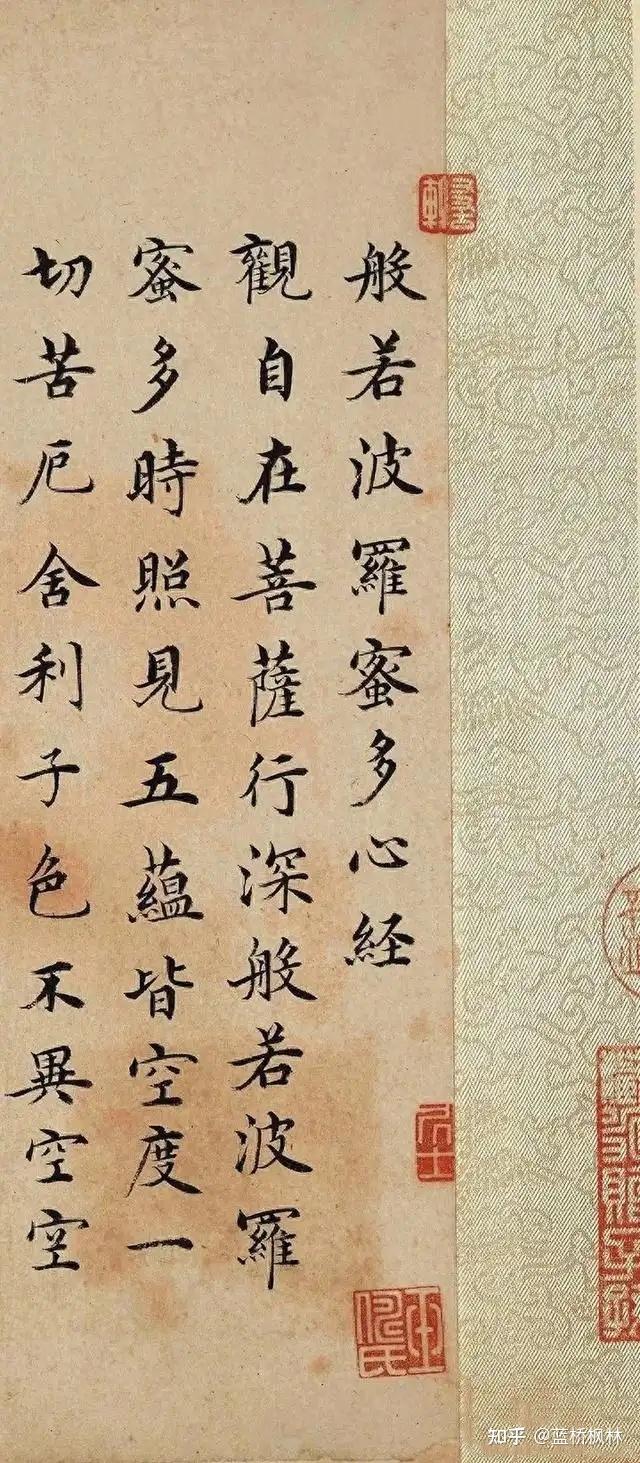 般若波羅蜜多心経
觀自在菩薩行深般若波羅
蜜多時照見五蘊皆空度一
切苦厄舍利子色不異空空
知乎 @蓝桥枫林